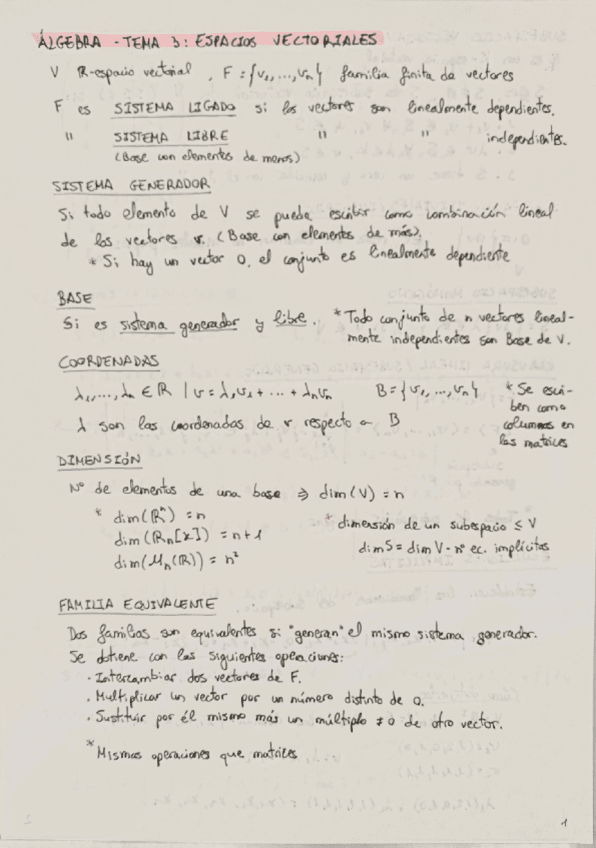 ÁLGEBRA - TEMA 3: ESPACIOS VECTORIALES
V R-espacio vectorial, F = {v₁,...,vₙ} familia finita de vectores
F es SISTEMA LIGADO si los vectores son linealmente dependientes.
" SISTEMA LIBRE " " independientes.
(Base con elementos de menos)
SISTEMA GENERADOR
Si todo elemento de V se puede escribir como combinación lineal
de los vectores v. (Base con elementos de más).
* Si hay un vector 0, el conjunto es linealmente dependiente
BASE
Si es sistema generador y libre. * Todo conjunto de n vectores lineal-
mente independientes son Base de V.
COORDENADAS
λ₁,...,λₙ ∈ R | v = λ₁v₁ + ... + λₙvₙ B = {v₁,...,vₙ} * Se escri-
ben como
columnas en
las matrices
λ son las coordenadas de v respecto a B
DIMENSIÓN
Nº de elementos de una base ⇒ dim(V) = n
* dim(Rⁿ) = n
dim(Rₙ[x]) = n+1
dim(Mₙ(R)) = n²
* dimensión de un subespacio ≤ V
dim S = dim V - nº ec. implícitas
FAMILIA EQUIVALENTE
Dos familias son equivalentes si "generan" el mismo sistema generador.
Se obtiene con las siguientes operaciones:
· Intercambiar dos vectores de F.
· Multiplicar un vector por un número distinto de 0.
· Sustituir por él mismo más un múltiplo ≠ 0 de otro vector.
* Mismas operaciones que matrices
1